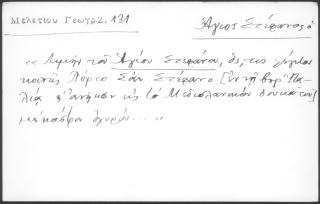 Μελετίου Γεωγρ. 2, 131
Ἅγιος Στέφανος ὁ
« Λιμὴν τοῦ Ἁγίου Στεφάνου, ὅστις λέγεται
κοινῶς Πόρτο Σὰν Στέφανο [ἐν τῇ Βορ. Ἰτα-
λίᾳ] ἀνήκων εἰς τὸ Μεδιολανικὸν δουκάτον]
μὲ κάστρο ὀχυρόν.... »